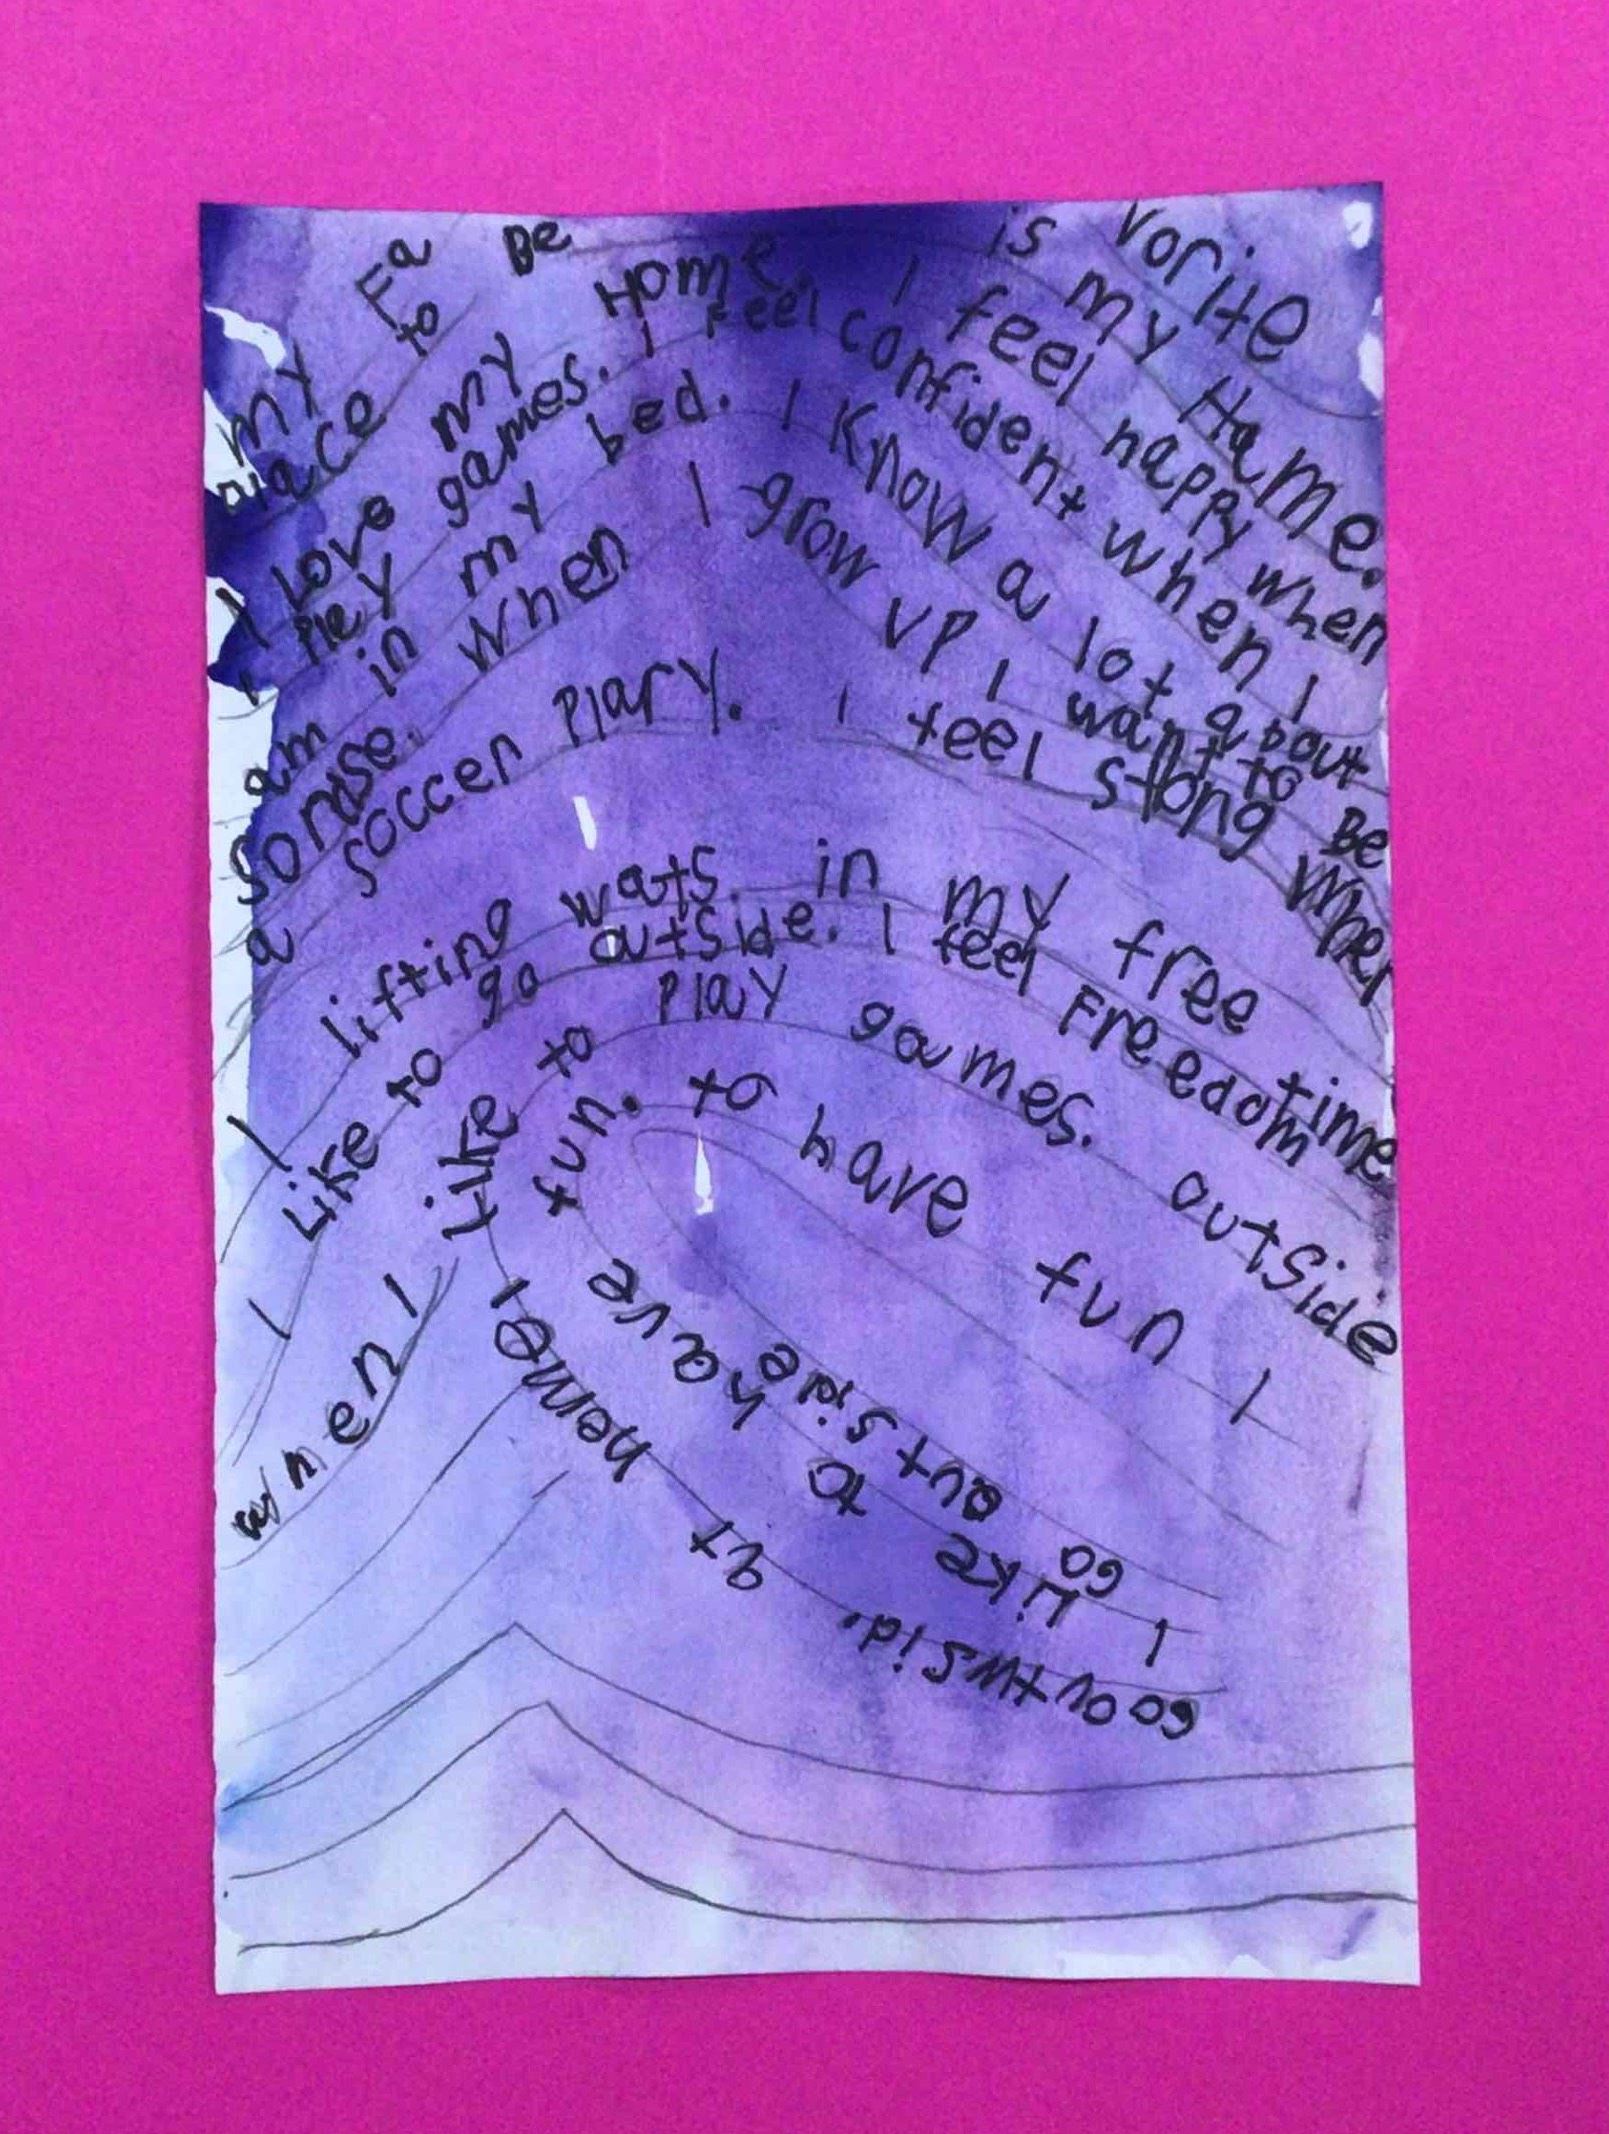 my Fa vorite
place to Be is my Hame.
I love my Home. I feel happy when
I Pley games. I feel confident when I
am in my bed. I Know a lot about
When I grow up I want to Be
a soccer Plary. I feel stong When
I lifting wats. in my free time
I Like to go outside. I feel Freedom
when I
like to play games. outside
Goovtwsid. at heme I
I like to have fun. to have fun I
Go outside